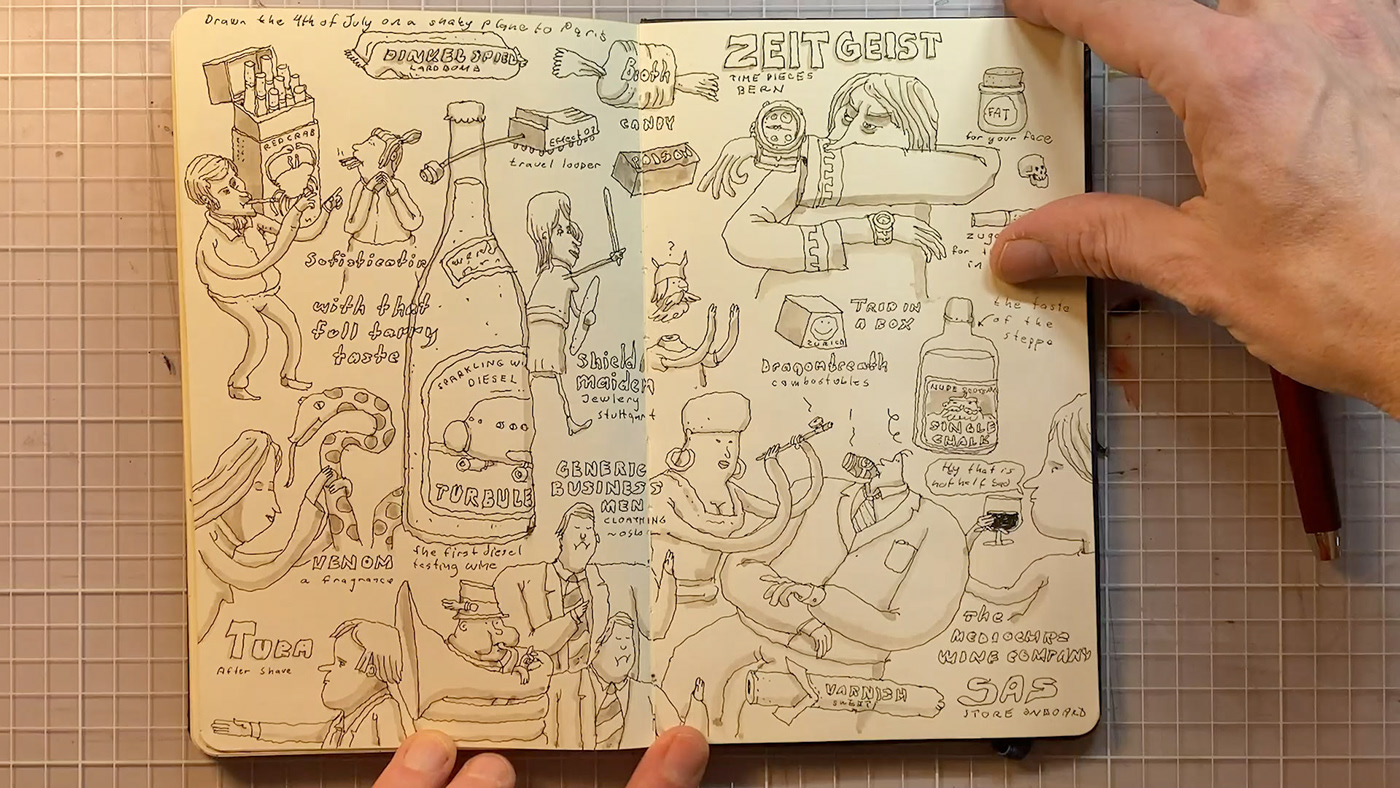 Drawn the 4th of July on a shaky plane to Paris
DINKEL SPIEL
LARD BOMB
Broth
CANDY
ZEITGEIST
TIME PIECES
BERN
FAT
for your face
RED CRAB
Effect 02
travel looper
POISON
Sofisticatin
with that
full tarry
taste
SPARKLING WI
DIESEL
TURBULE
the first diesel
tasting wine
Shield
maiden
Jewlery
stuttgart
?
ZURICH
TRIP IN
A BOX
Dragonbreath
combostables
for
in
the taste
of the
steppe
NUDE
SINGLE
CHALK
GENERIC
BUSINESS
MEN
CLOATHING
~ OSLO ~
Hey that is
not half bad
VENOM
a fragrance
TUBA
After shave
The
MEDIOCHRE
WINE COMPANY
VARNISH
SWEET
SAS
STORE ONBOARD